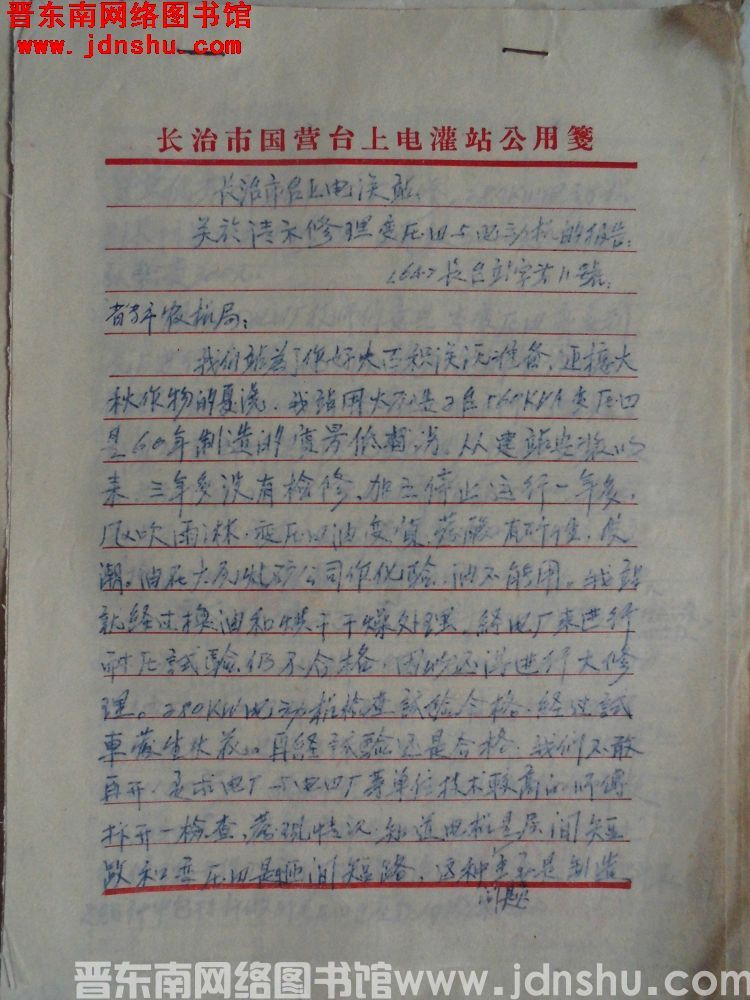 晋东南网络图书馆
www.jdnshu.com
长治市国营台上电灌站公用箋
长治市台上电溉站
关於请示修理变压四与电动机的报告:
(64)长台站字第11號:
省 农机局:
我们站为了作好大面积溉浇准备,迎接大
秋作物的夏浇.我站 2台560KVA变压四
是60年制造的 从建站安装以
来.三年多没有检修.加之停止运行一年多,
风吹雨淋.变压四油变質. 酸 受
潮。油在 公司作化验.油不能用。我站
就经过換油和烘干干燥处理。経电厂来进行
耐压試驗仍不合格.因此还需进行大修
理。280KW电动机检查試验合格.経过試
車发生 再経試驗还是合格.我们不敢
再开.要求电厂与电四厂等单位技术较高的师傅
拆开一检查,发现情况.知道电机是层间短
路和变压四是匝间短路。这种主要是制造
问题
晋东南网络图书馆www.jdnshu.com